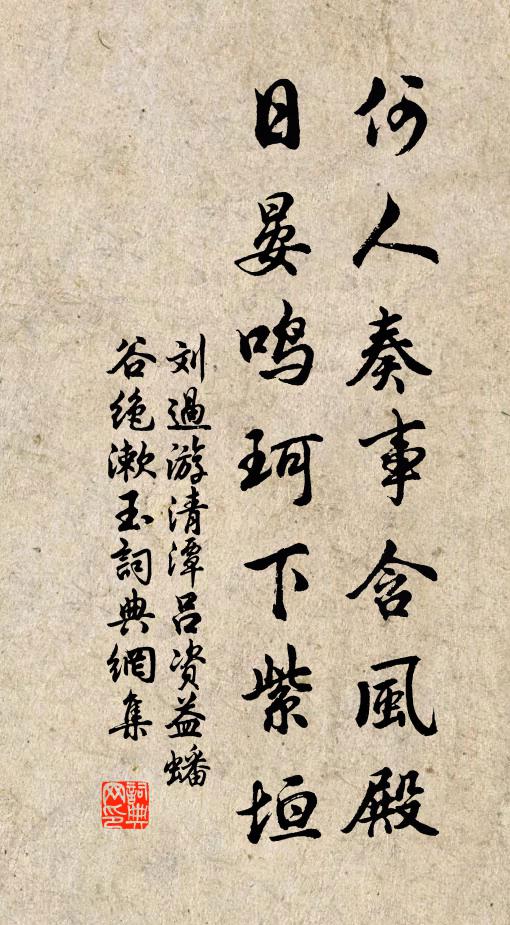 何人奏事含風殿
日晏鳴珂下紫垣
刘過游清潭吕资益蟠
谷绝漱玉詞典網集
詞典网印